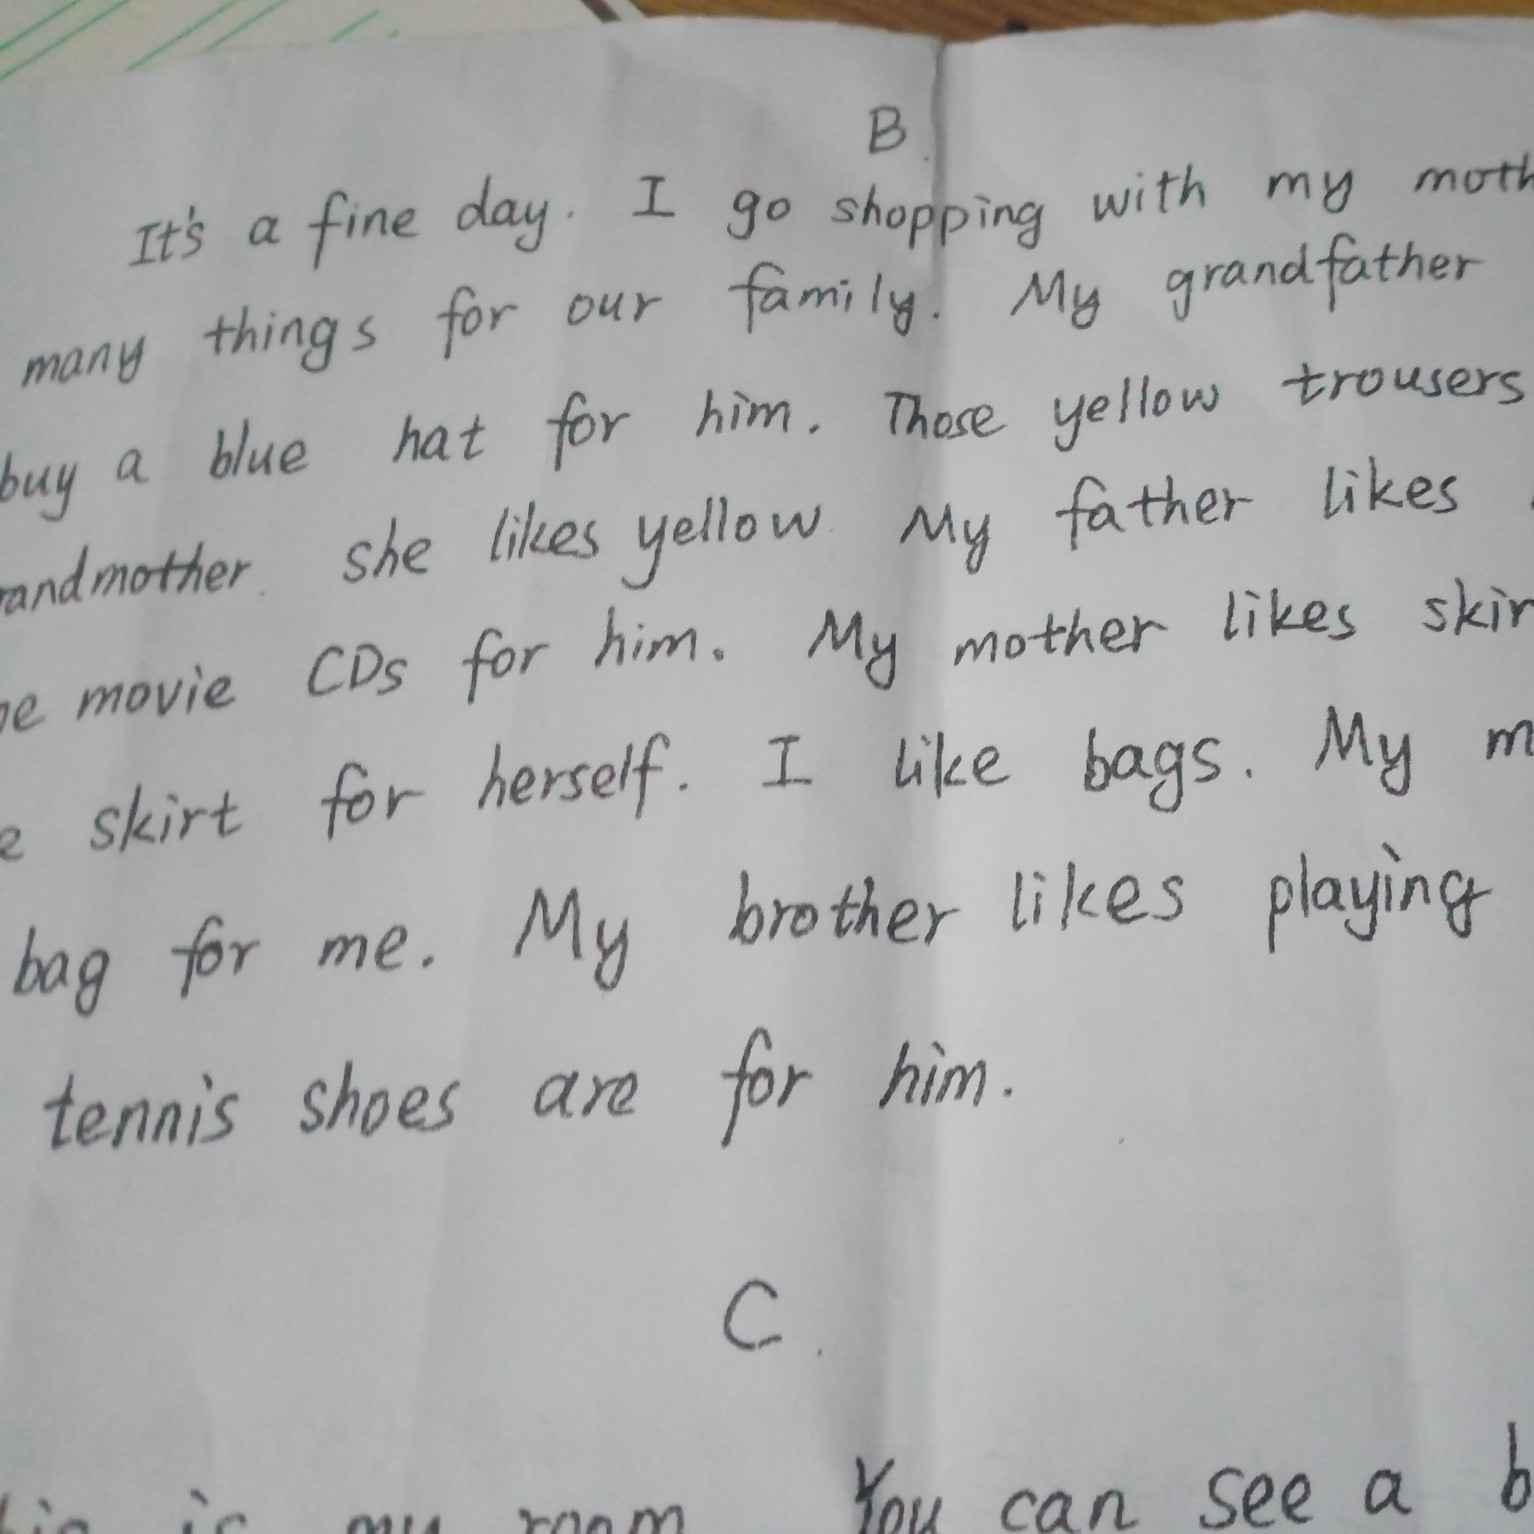 B.
It's a fine day. I go shopping with my moth
many things for our family. My grandfather
buy a blue hat for him. Those yellow trousers
andmother. she likes yellow. My father likes
movie CDs for him. My mother likes skir
skirt for herself. I like bags. My m
bag for me. My brother likes playing
tennis shoes are for him.
C.
is my room You can see a b